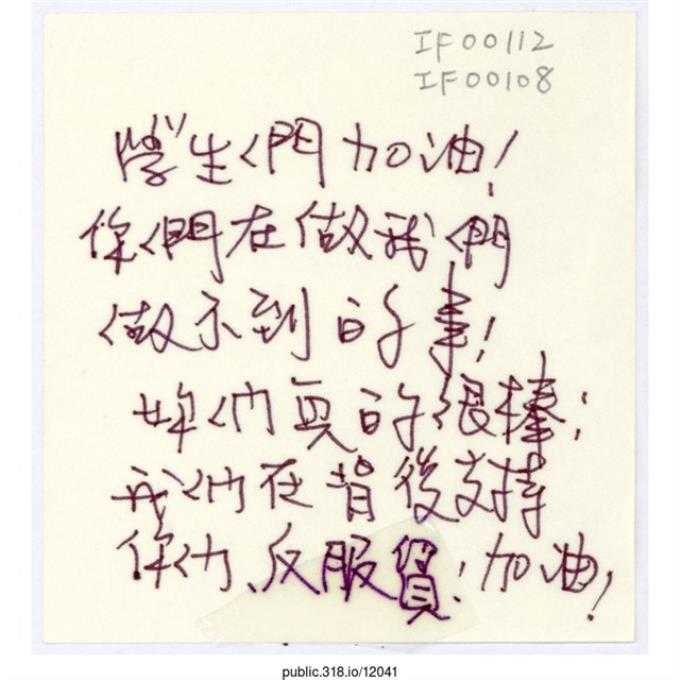 IF00112
IF00108
學生们門加油!
你們在做我們
做不到的事!
妳們真的很棒;
我們在背後支持
你們、反服貿!加油!
public.318.io/12041